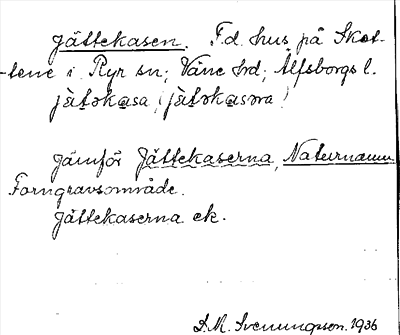 Jättekasen. F.d. hus på Skot-
tene i Ryr sn; Väne hd; Älfsborgs l.
jàtəkasa (jàtəkasəra)
Jämför Jättekaserna, Naturnamn
Forngravsområde.
Jättekaserna ek.
S.M. Svenungsson. 1936